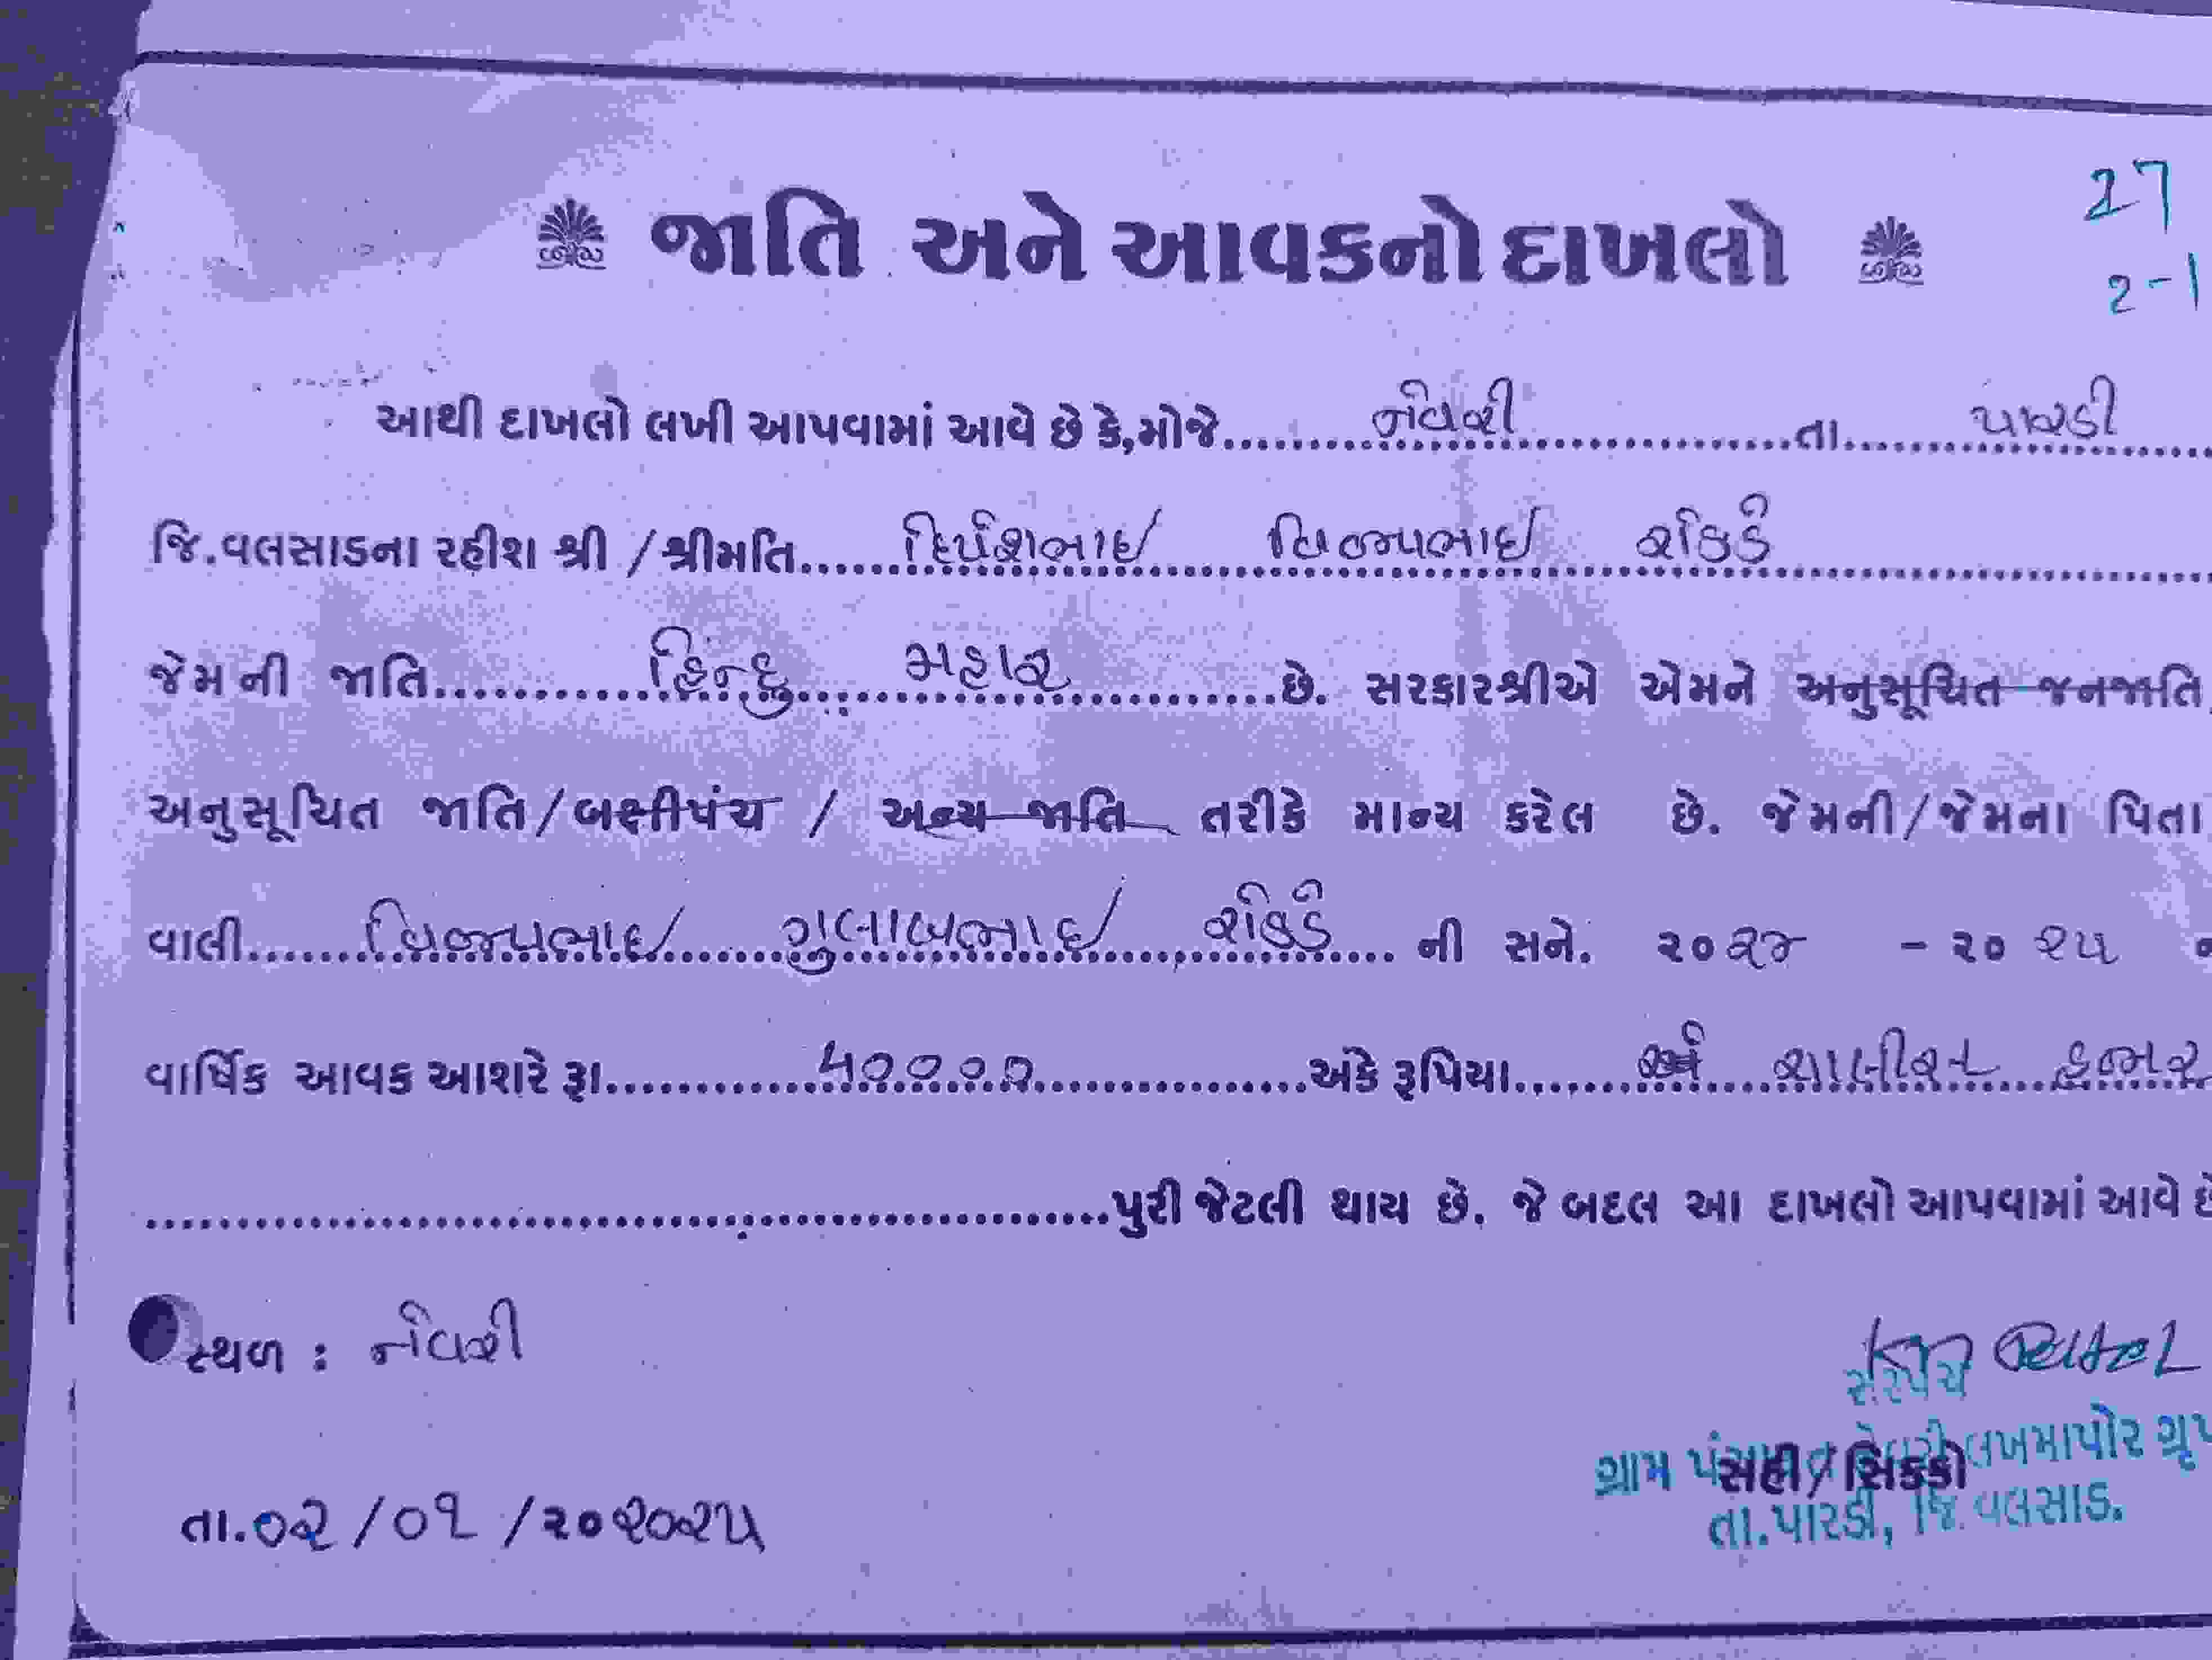 જાતિ અને આવકનો દાખલો
27
2-1
આથી દાખલો લખી આપવામાં આવે છે કે,મોજે.....નેવરી.....તા.....પારડી
જિ.વલસાડના રહીશ શ્રી / શ્રીમતિ..... વિજયભાઈ
જેમની જાતિ.....હિન્દુ મહાર.....છે. સરકારશ્રીએ એમને અનુસૂચિત જનજાતિ
અનુસૂચિત જાતિ/બક્ષીપંચ / અન્ય જાતિ તરીકે માન્ય કરેલ છે. જેમની/જેમના પિતા
વાલી.....વિજયભાઈ ગુલાબભાઈ..... ની સને. ૨૦૨૪ - ૨૦ ૨૫
વાર્ષિક આવક આશરે રૂા.....40000.....અંકે રૂપિયા..... ચાલીસ હજાર
.....પુરી જેટલી થાય છે. જે બદલ આ દાખલો આપવામાં આવે છે
સ્થળ : નેવરી
સરપંચ
ગ્રામ લખમાપોર ગ્રુપ
સહી / સિકકો
તા.પારડી, જિ. વલસાડ.
તા.૦૨ /૦૧ /૨૦૨૦૨૫